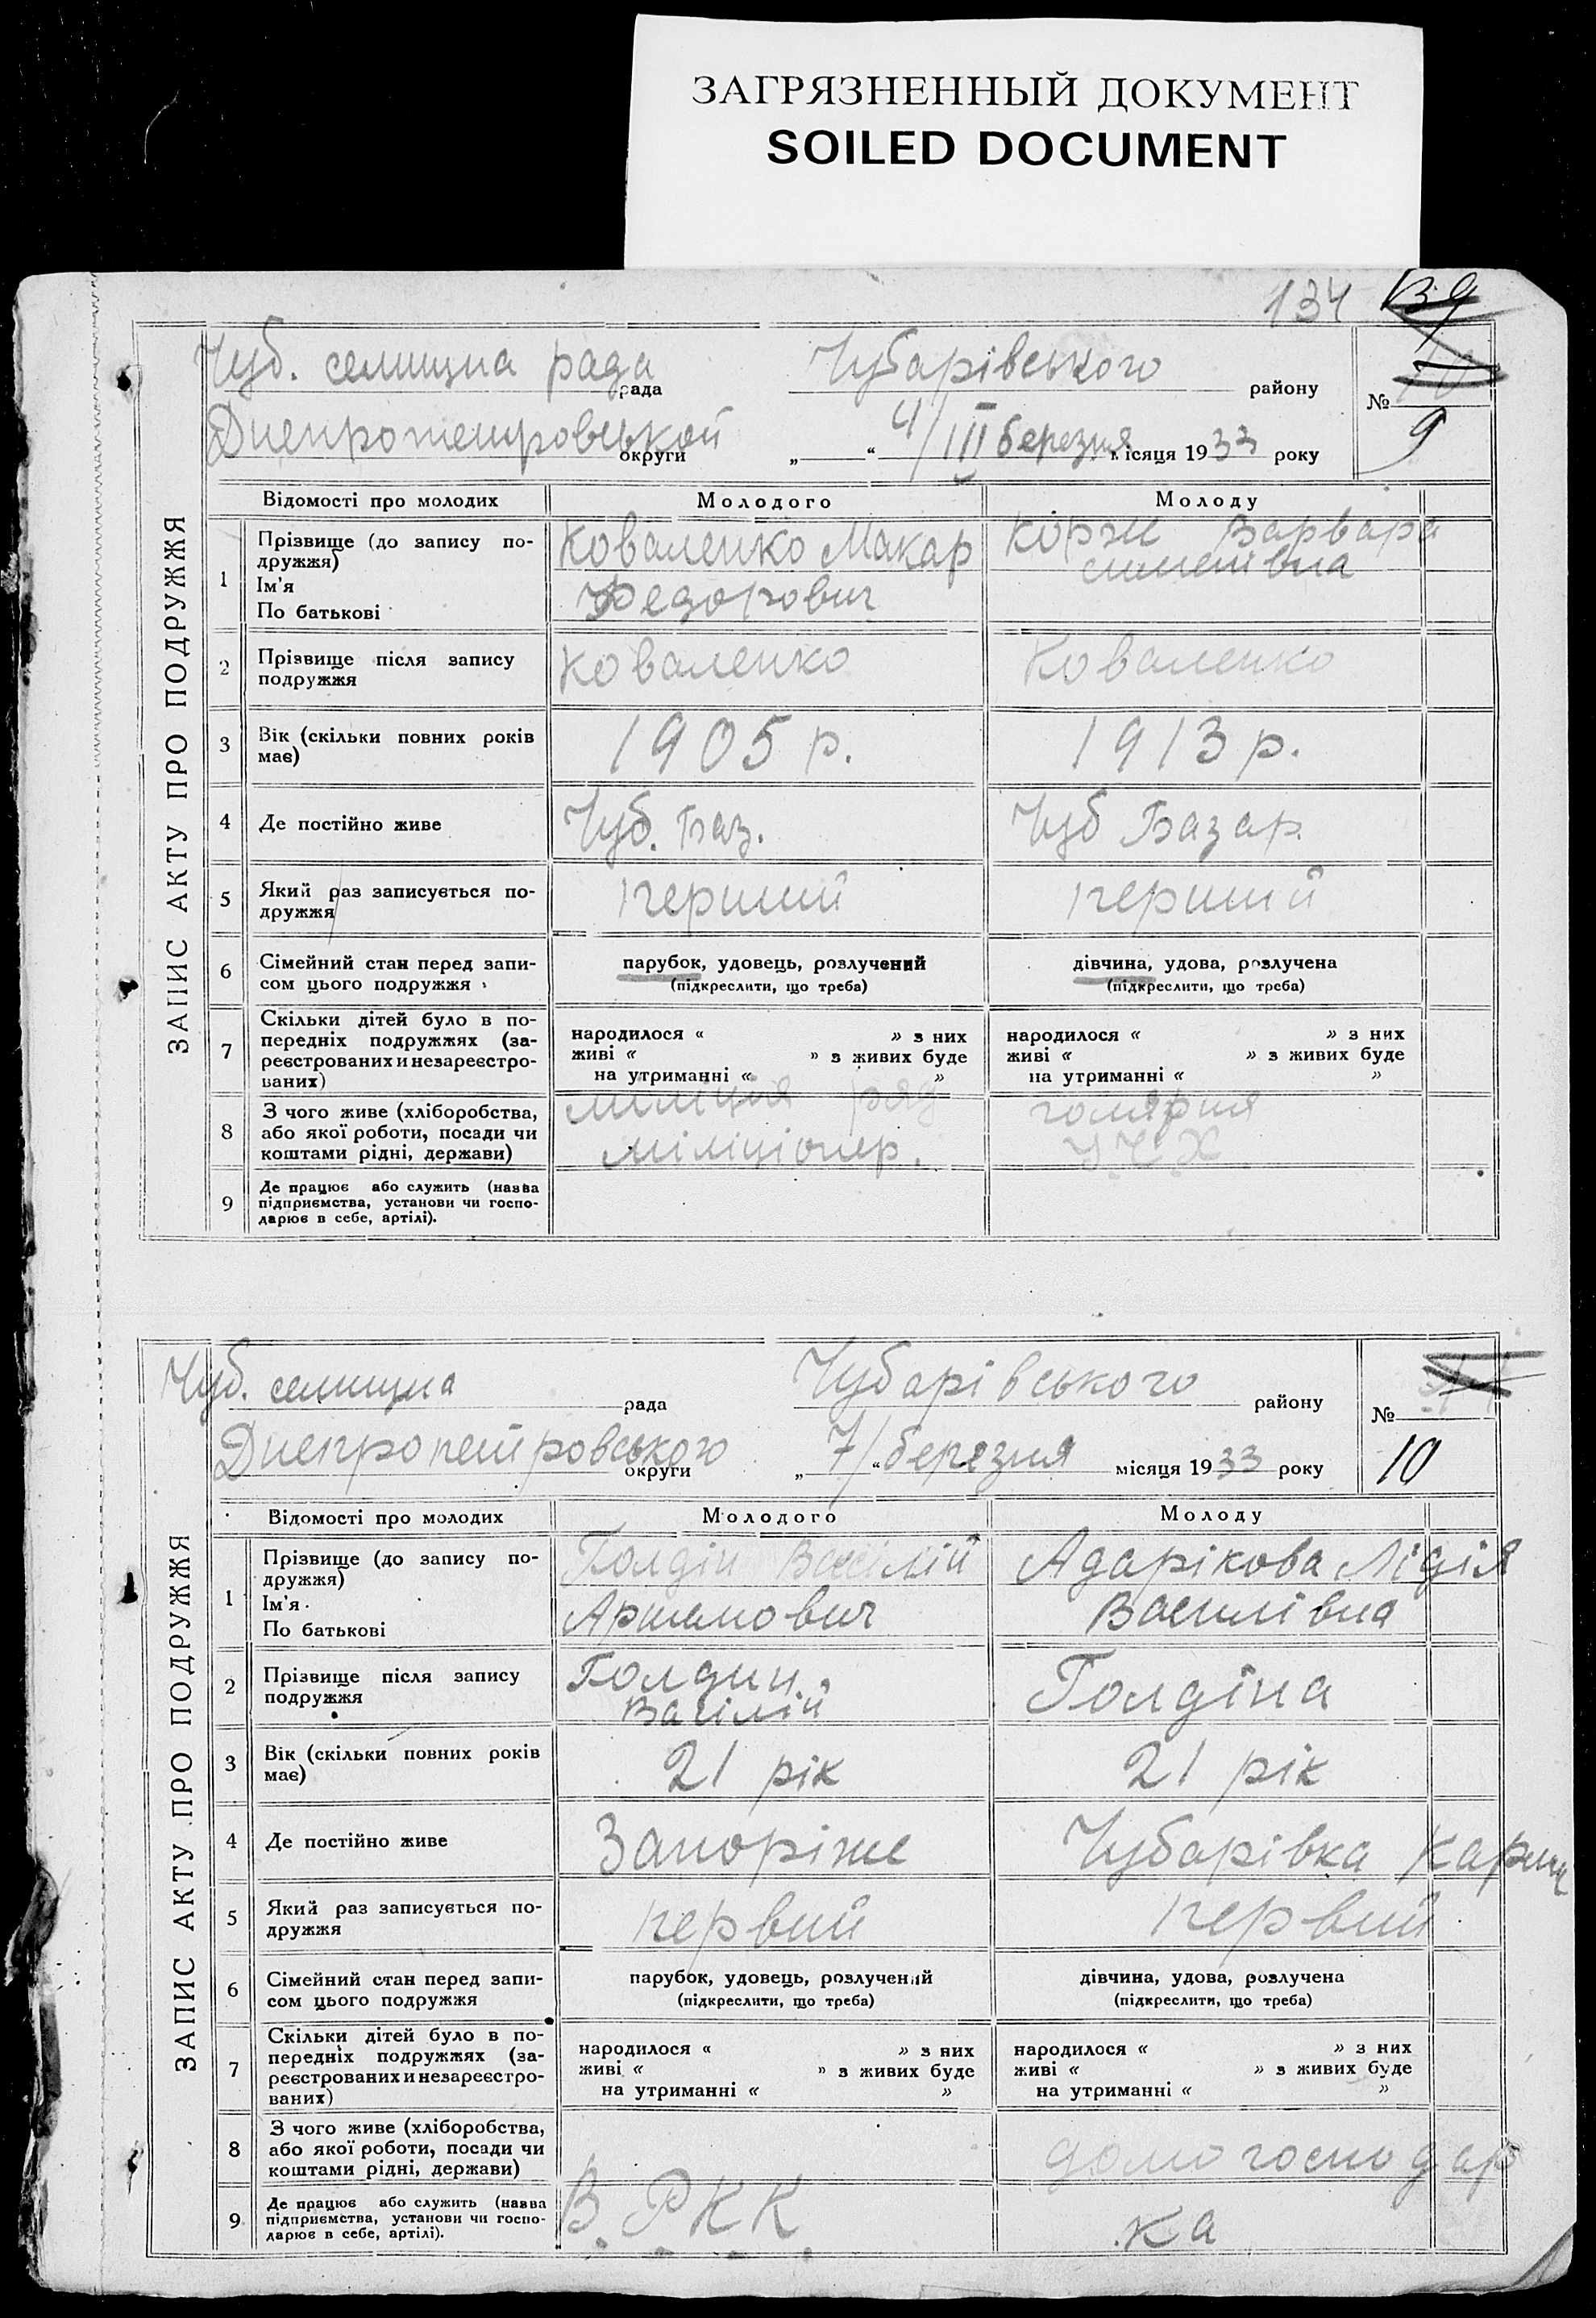 ЗАГРЯЗНЕННЫЙ ДОКУМЕНТ
SOILED DOCUMENT
134 139
Чуб. селищна рада рада Чубарівського району №
9
Днепропетровської округи „ “ 4/III березня місяця 1933 року
ЗАПИС АКТУ ПРО ПОДРУЖЖЯ
Відомості про молодих Молодого Молоду
1 Прізвище (до запису по-
дружжя)
Ім'я
По батькові
Коваленко Макар
Федорович
Корже Варвара
семенівна
2 Прізвище після запису
подружжя
Коваленко Коваленко
3 Вік (скільки повних років
має)
1905 р. 1913 р.
4 Де постійно живе Чуб. Баз. Чуб Базар.
5 Який раз записується по-
дружжя
перший перший
6 Сімейний стан перед запи-
сом цього подружжя
парубок, удовець, розлучений
(підкреслити, що треба)
дівчина, удова, розлучена
(підкреслити, що треба)
7 Скільки дітей було в по-
передніх подружжях (за-
реєстрованих и незареєстро-
ваних)
народилося « » з них
живі « » з живих буде
на утриманні « »
народилося « » з них
живі « » з живих буде
на утриманні « »
8 З чого живе (хліборобства,
або якої роботи, посади чи
коштами рідні, держави)
міліція ряд
міліціонер.
9 Де працює або служить (назва
підприємства, установи чи госпо-
дарює в себе, артілі).
Чуб. селищна рада Чубарівського району №
10
Днепропетровського округи „ 7/ “ березня місяця 1933 року
ЗАПИС АКТУ ПРО ПОДРУЖЖЯ
Відомості про молодих Молодого Молоду
1 Прізвище (до запису по-
дружжя)
Ім'я
По батькові
Голдін Васілій
Артемович
Адарікова Лідія
Василівна
2 Прізвище після запису
подружжя
Голдин.
Васілій
Голдіна
3 Вік (скільки повних років
має)
21 рік 21 рік
4 Де постійно живе Запоріже Чубарівка
5 Який раз записується по-
дружжя
первий первий
6 Сімейний стан перед запи-
сом цього подружжя
парубок, удовець, розлучений
(підкреслити, що треба)
дівчина, удова, розлучена
(підкреслити, що треба)
7 Скільки дітей було в по-
передніх подружжях (за-
реєстрованих и незареєстро-
ваних)
народилося « » з них
живі « » з живих буде
на утриманні « »
народилося « » з них
живі « » з живих буде
на утриманні « »
8 З чого живе (хліборобства,
або якої роботи, посади чи
коштами рідні, держави)
домогосподар
9 Де працює або служить (назва
підприємства, установи чи госпо-
дарює в себе, артілі).
В. РКК
ка